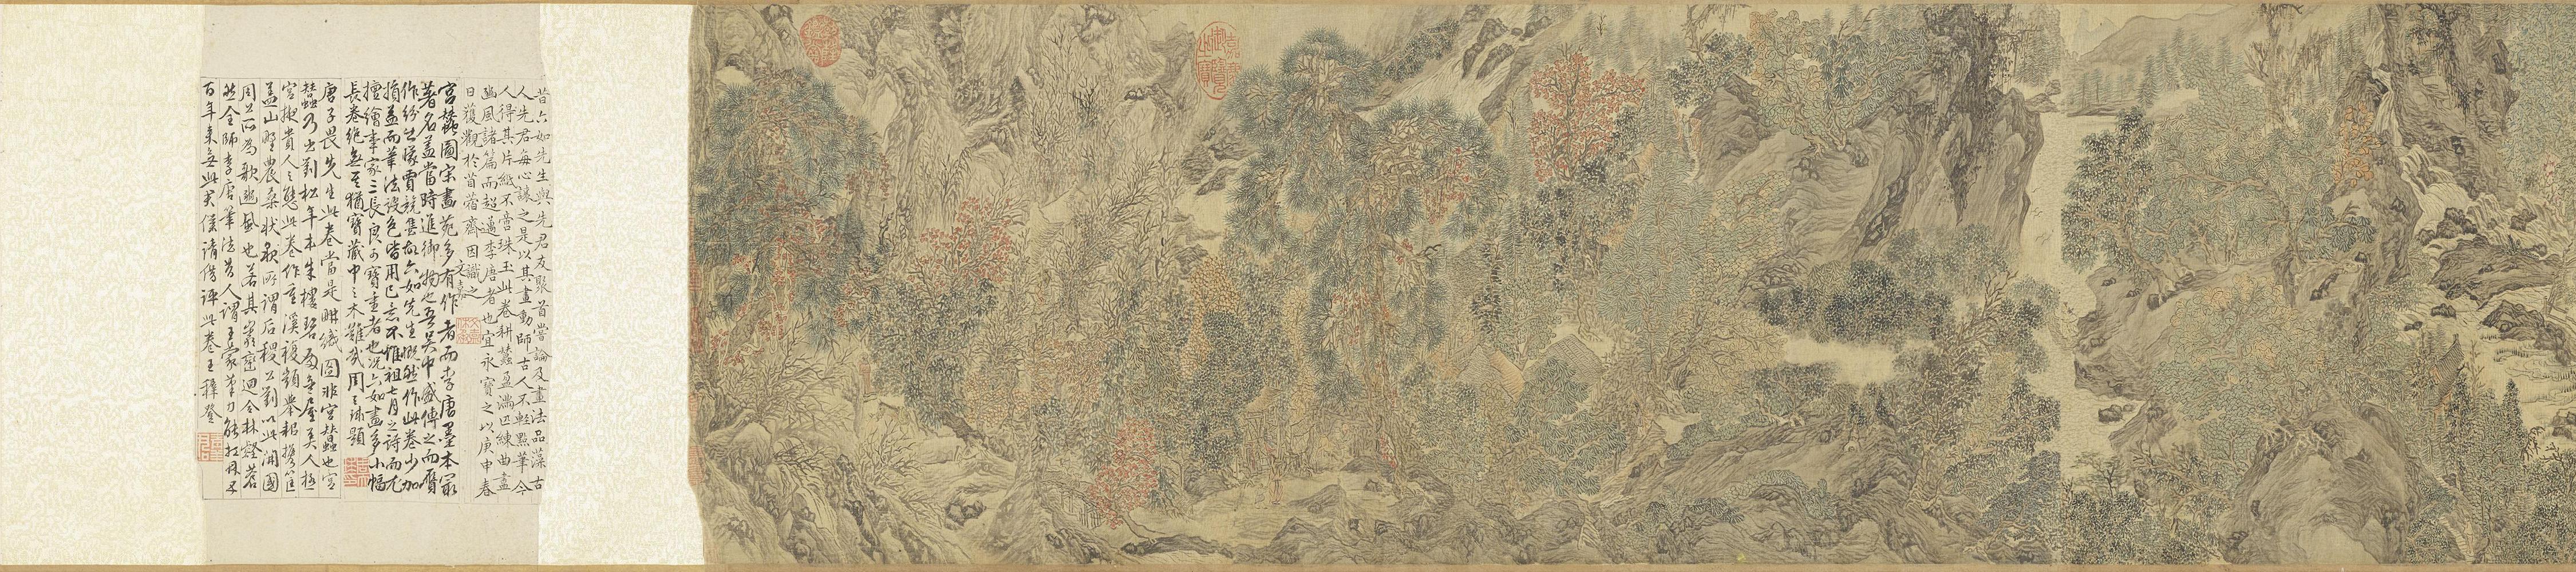 昔六如先生與先君友最首嘗論及畫法品藻古
人先君每心讓之是以其畫動師古人不輕點筆今
人得其片紙不啻珠玉此卷耕蠶盈滿匹練曲盡
豳風諸篇而超過李唐者也宜永寶之以庚申春
日獲觀於苜蓿齋因識之
文嘉
宮蠶圖宋畫苑多有作者而李唐墨本最
著名蓋當時進御物也吾吳中盛傳之而贋
作紛出塚賈競售故六如先生慨然作此卷少加
損益而筆法設色皆用己意不惟祖七月之詩而尤
擅繪事家三長良可寶重者也況六如畫多小幅
長卷絕無至猶寶藏中之木難哉周之冕題
唐子畏先生此卷當是耕織圖非宮蠶也宮
蠶乃出劉松年本朱樓碧
宮掖貴人之態此卷作重溪複嶺舉耜携筐
蓋山野農桑狀貌所謂后稷公劉以此開國
周公所為歌豳風也若其巖壑迴合林壑蒼
然全師李唐筆法昔人謂王蒙筆力能扛鼎五
百年來無此矣信請借評此卷王穉登